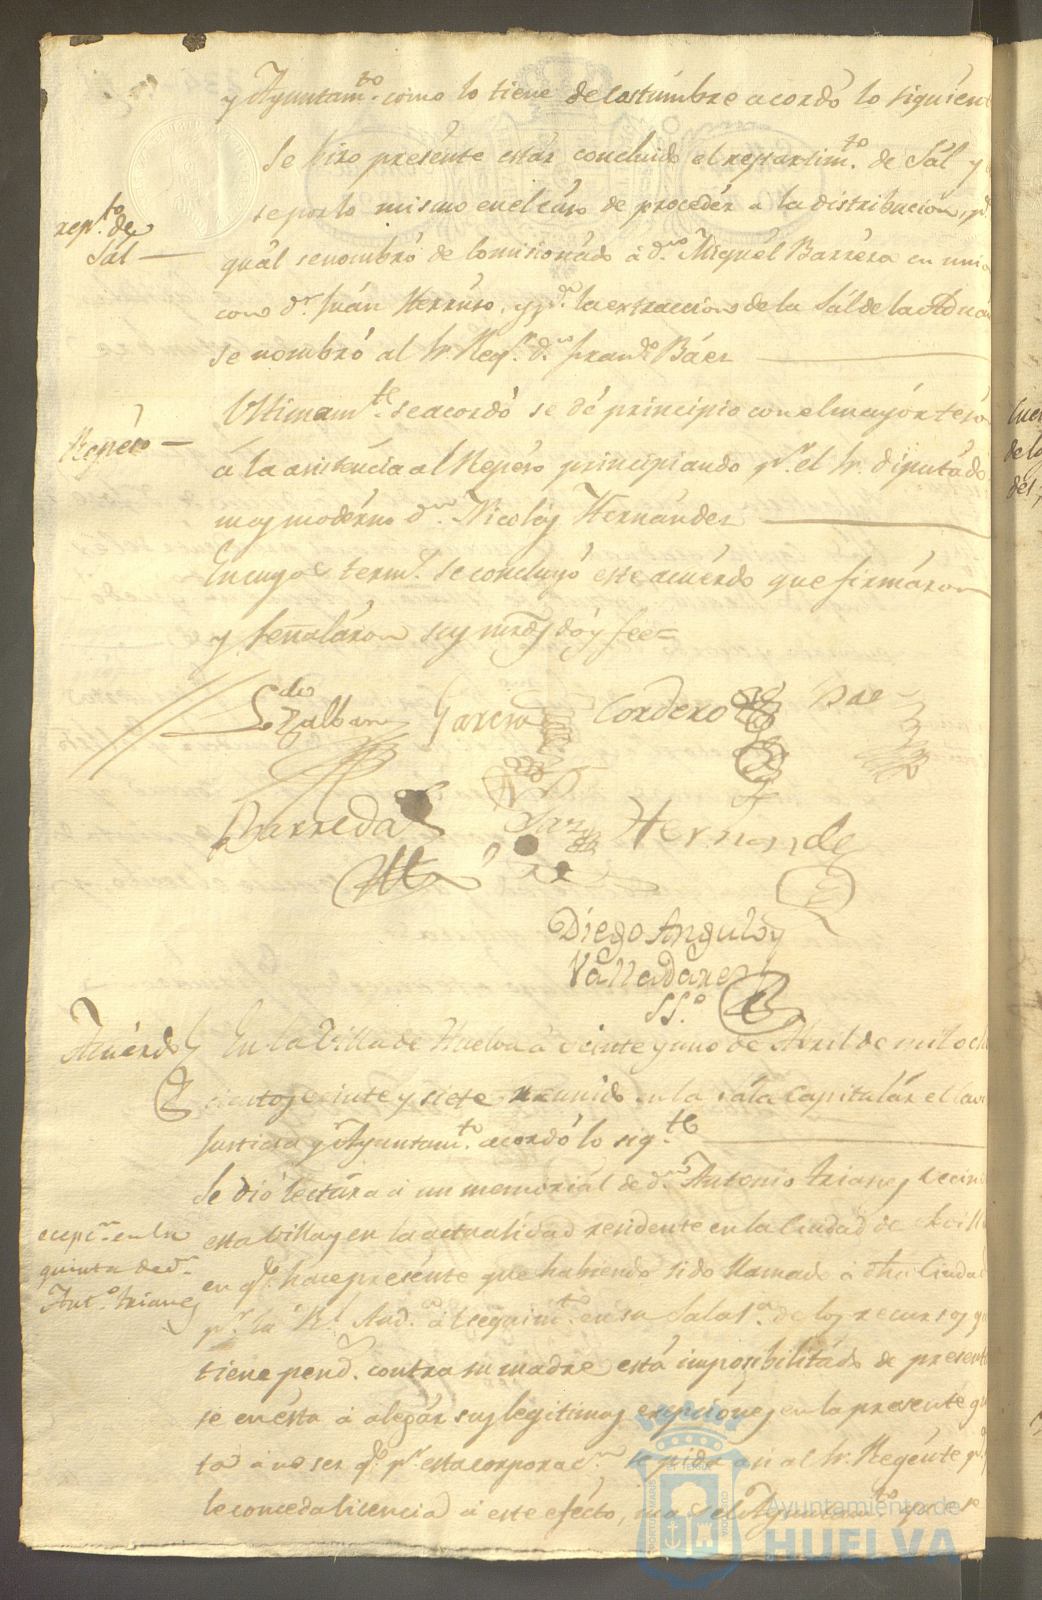 y Ayuntam.to como lo tiene de costúmbre acordó lo siguien
Se hizo presénte estár concluido el repartim.to de Sál y
rep.to de
Sál —
se por lo mismo en el cáso de procedér a la distribucion, p.r
quál se nombró de Comisionádo á d.n Miguél Barréra en unio
con d.n Juán Herréro, y p.a la extraccion de la Sál de la Aduá
se nombró al Sr. Reg.r d.n Fran.co Báez
Repéso —
Ultimam.te se acordó se dé principio con el mayór tesó
á la asisténcia al Repéso principiando p.r el Sr. diputádo
mas modérno d.n Nicolás Hernández
En cuyos térm.s se concluyó este acuérdo que firmáron
y señaláron sus mrds dóy fee=
L.do Zalban García Cordero Bae
Barreda Hernande
Diego Angulo y
Valladares
SS.o
Acuérdo
En la Villa de Huelva á veinte y uno de Abril de mil ocho
cientos veinte y siete reunido en la Sála Capitulár el Cav
Justicia y Ayuntam.to acordó lo sig.te
Se dió lectúra á un memoriál de d.n Antonio Trianes vecin
esta Villa y en la actualidad residente en la Ciudad de Sevilla
ecepc.n en la
quinta de d.n
Ant.o Trianes
en q.e hace presénte que habiendo sido llamado á dha Ciudad
p.r la R.l Aud.a al seguim.to en su Sala 1.a de los recursos q
tiene pend.s contra su madre está imposibilitádo de present
se en ésta á alegár sus legitimas exenciónes en la presente qu
ta á no ser q.e p.r esta corporac.n se pida asi al Sr. Regénte p.a
le conceda licencia á este efécto, mas el Ayuntam.to que se
Ayuntamiento de
HUELVA